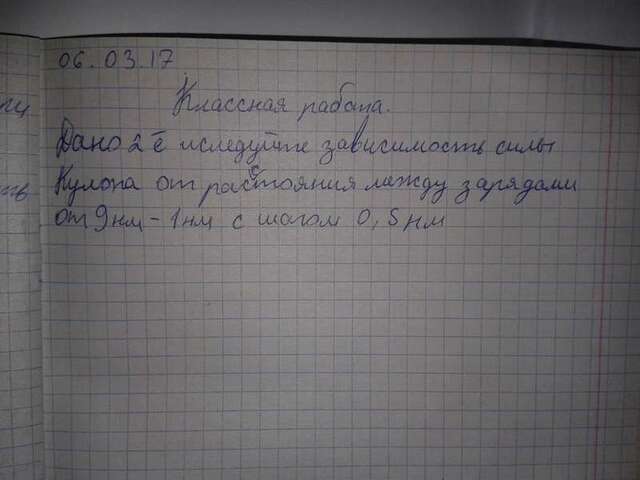 06.03.17
Классная работа.
Дано 2 ē иследуйте зависимость силы
Кулона от расстояния между зарядами
от 9нм – 1нм с шагом 0,5нм